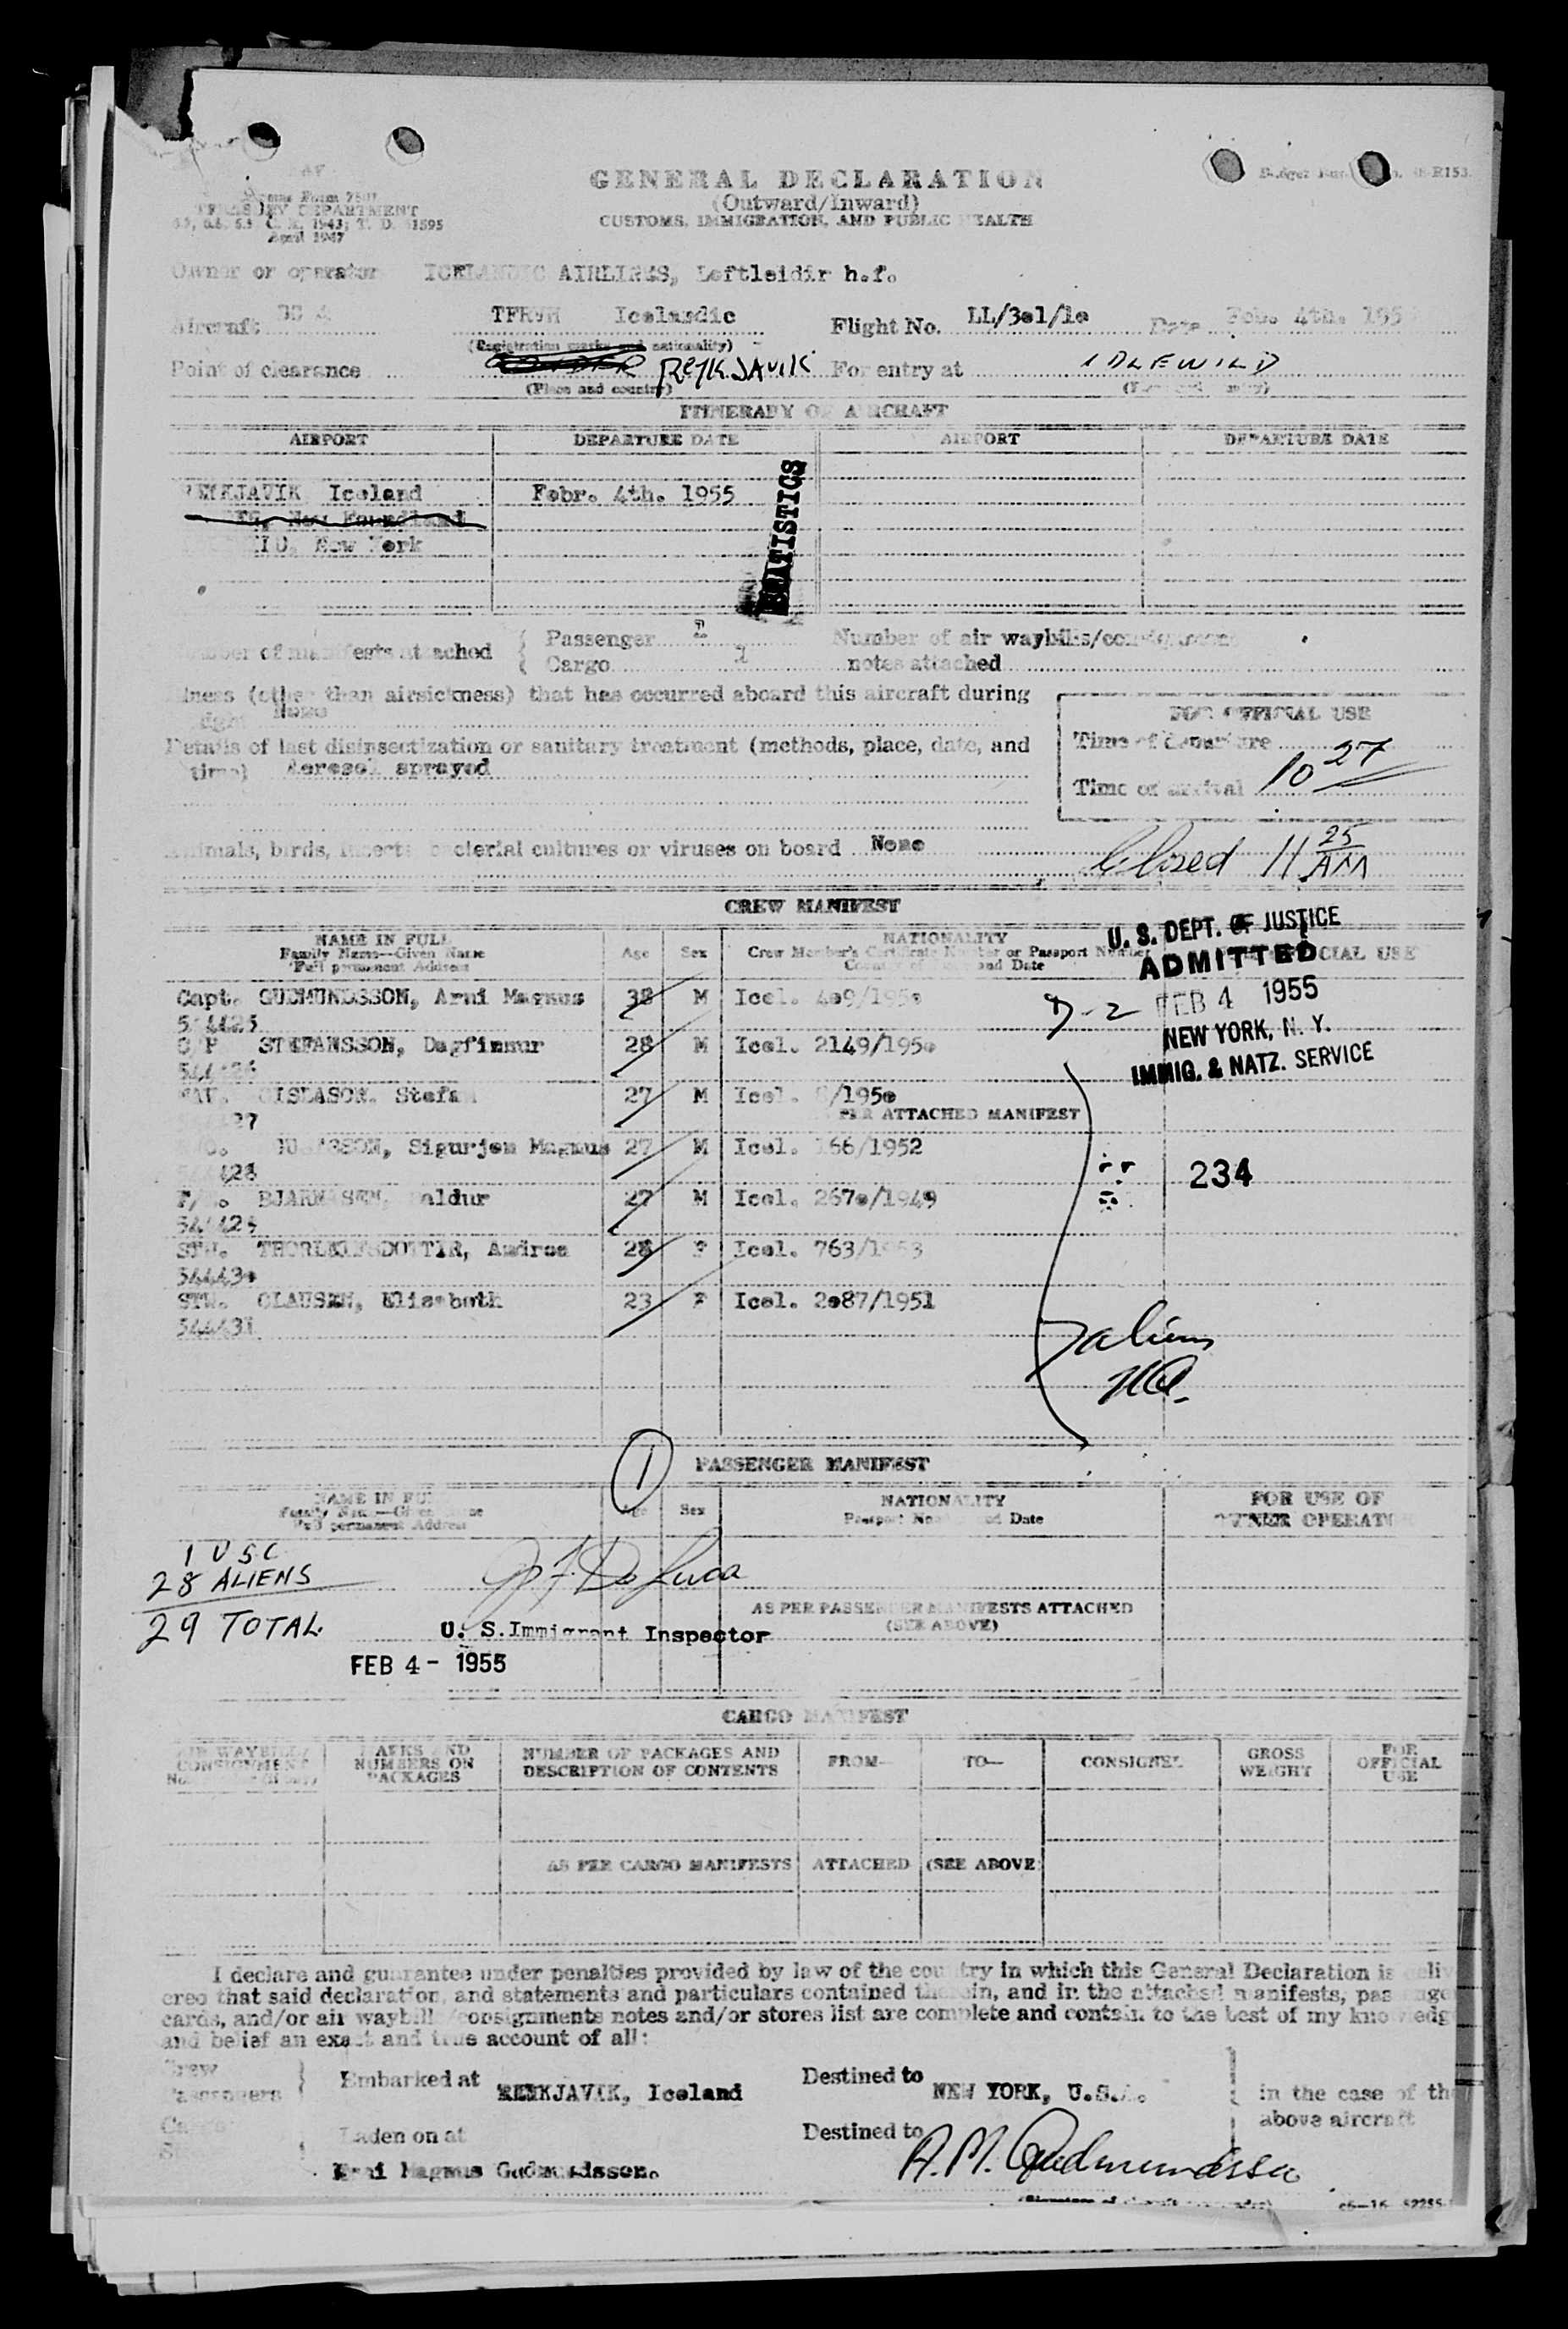 GENERAL DECLARATION
(Outward/Inward)
CUSTOMS, IMMIGRATION, AND PUBLIC HEALTH
Form 7507
TREASURY DEPARTMENT
April 1947
Owner or operator ICELANDIC AIRLINES, Loftleidir h.f.
Aircraft Icelandic Flight No. LL/3o1/1o Date Feb. 4th. 195
(Registration marks and nationality)
Point of clearance REYKJAVIK For entry at IDLEWILD
(Place and country)
ITINERARY OF AIRCRAFT
AIRPORT DEPARTURE DATE AIRPORT DEPARTURE DATE
REYKJAVIK Iceland Febr. 4th. 1955
New Foundland
New York
STATISTICS
Number of manifests attached
Passenger 2
Cargo 1
Number of air waybills/consignment
notes attached
Illness (other than airsickness) that has occurred aboard this aircraft during
None
Details of last disinsectization or sanitary treatment (methods, place, date, and
time) Aerosol sprayed
FOR OFFICIAL USE
Time of departure
Time of arrival 10 27
Animals, birds, insects, bacterial cultures or viruses on board None
Closed 11 25 AM
CREW MANIFEST
NAME IN FULL
Family Name—Given Name
Full permanent Address
Age Sex
NATIONALITY
Crew Member's Certificate Number or Passport Number
Country of and Date
OFFICIAL USE
U. S. DEPT. OF JUSTICE
ADMITTED
FEB 4 1955
NEW YORK, N. Y.
IMMIG. & NATZ. SERVICE
D-2
Capt. GUDMUNDSSON, Arni Magnus 38 M Icel. 4o9/195o
544425
STEFANSSON, Dagfinnur 28 M Icel. 2149/195o
GISLASON. Stefan 27 M Icel. /195o
PER ATTACHED MANIFEST
Sigurjon Magnus 27 M Icel. 166/1952
234
BJARNASEN, Baldur 27 M Icel. 267o/1949
STW. THORLEIFSDOTTIR, Andrea 28 F Icel. 763/1953
54443o
STW. CLAUSEN, Elisabeth 23 F Icel. 2o87/1951
544431
7 aliens
1
PASSENGER MANIFEST
NAME IN FULL
Family Name—Given Name
Full permanent Address
Age Sex
NATIONALITY
Passport No. and Date
FOR USE OF
OWNER OPERATOR
1 USC
28 ALIENS
29 TOTAL
De Luca
AS PER PASSENGER MANIFESTS ATTACHED
(SEE ABOVE)
U. S. Immigrant Inspector
FEB 4 - 1955
CARGO MANIFEST
AIR WAYBILL/
CONSIGNMENT
MARKS AND
NUMBERS ON
PACKAGES
NUMBER OF PACKAGES AND
DESCRIPTION OF CONTENTS
FROM— TO— CONSIGNEE
GROSS
WEIGHT
FOR
OFFICIAL
USE
AS PER CARGO MANIFESTS ATTACHED (SEE ABOVE)
I declare and guarantee under penalties provided by law of the country in which this General Declaration is deliv
ered that said declaration, and statements and particulars contained therein, and in the attached manifests, passenger
cards, and/or air waybill /consignments notes and/or stores list are complete and contain to the best of my knowledge
and belief an exact and true account of all:
Crew
Passengers
Embarked at REYKJAVIK, Iceland Destined to NEW YORK, U.S.A.
in the case of the
above aircraft
Cargo
Laden on at Destined to
Arni Magnus Gudmundsson.
A.M. Gudmundsson